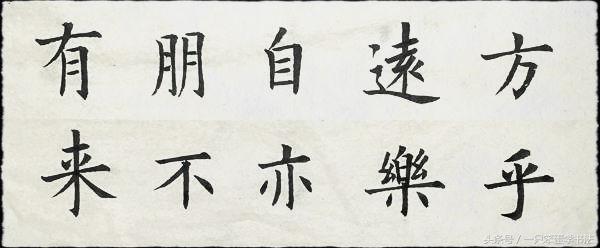 有朋自遠方
来不亦樂乎
头条号 / 一只笨蛋学书法